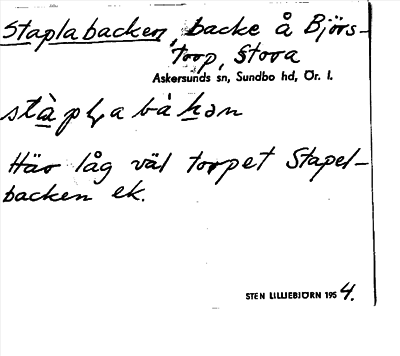 Staplabacken, backe å Björs-
torp, Stora
Askersunds sn, Sundbo hd, Ör. l.
Här låg väl torpet Stapel-
backen ek.
STEN LILLIEBJÖRN 1954.